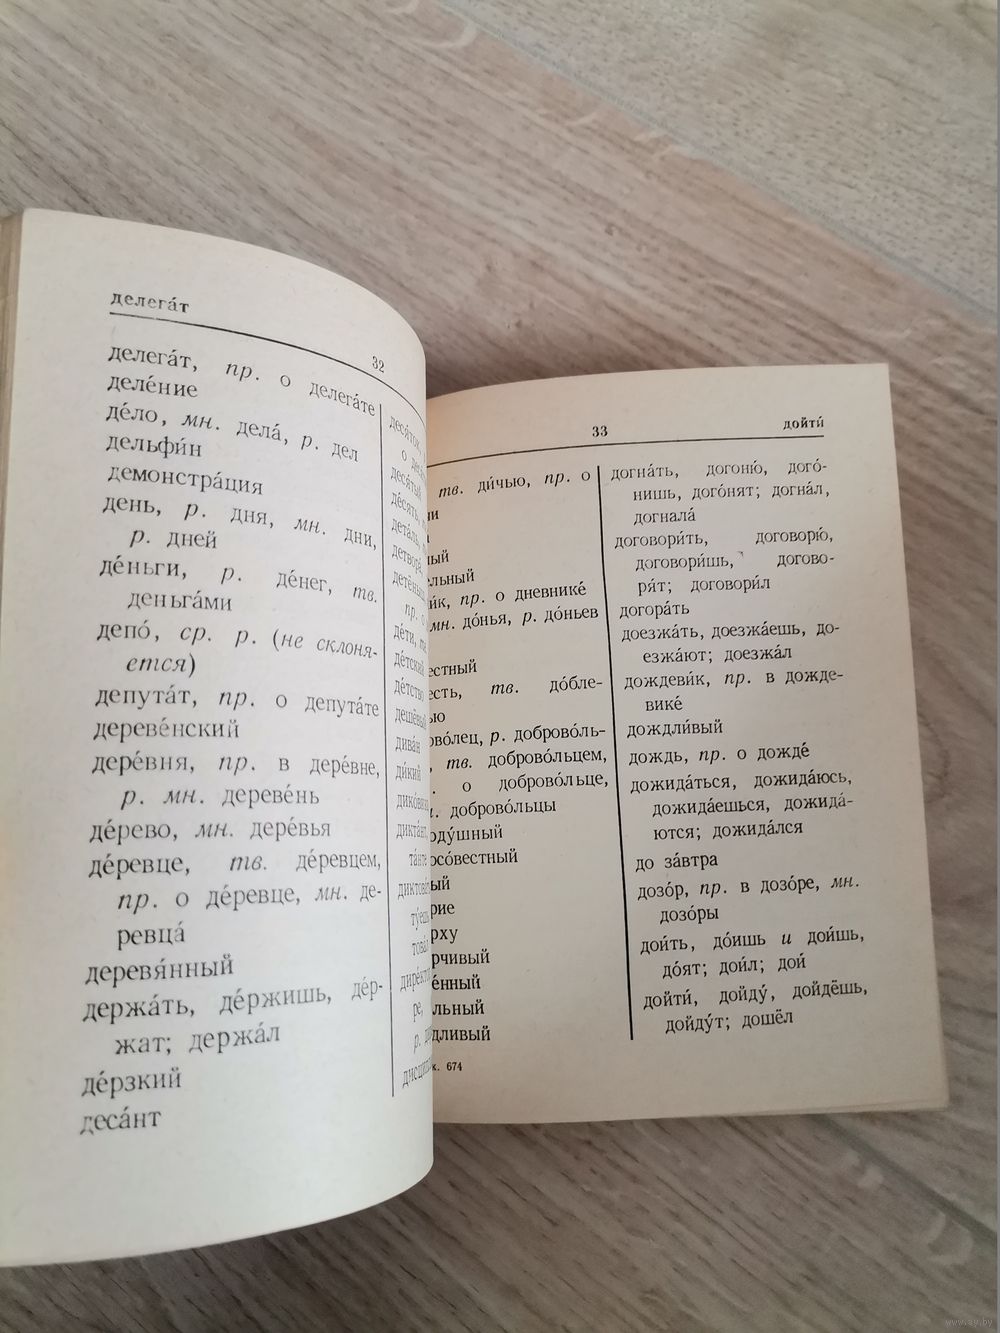 делега́т
32
делега́т, пр. о делега́те
деле́ние
де́ло, мн. дела́, р. дел
дельфи́н
демонстра́ция
день, р. дня, мн. дни,
р. дней
де́ньги, р. де́нег, тв.
деньга́ми
депо́, ср. р. (не склоня-
ется)
депута́т, пр. о депута́те
дереве́нский
дере́вня, пр. в дере́вне,
р. мн. дереве́нь
де́рево, мн. дере́вья
де́ревце, тв. де́ревцем,
пр. о де́ревце, мн. де-
ревца́
деревя́нный
держа́ть, де́ржишь, де́р-
жат; держа́л
де́рзкий
деса́нт
деся́ток,
деся́тый
де́сять,
дета́ль,
детвора́,
детёныш,
пр. о
де́ти,
де́тский
де́тство
дешёвый
дива́н
ди́кий
дикта́нт,
та́нте
дире́ктор
33
дойти́
тв. ди́чью, пр. о
ный
ельный
и́к, пр. о дневнике́
мн. до́нья, р. до́ньев
естный
есть, тв. до́бле-
ью
ово́лец, р. доброво́ль-
тв. доброво́льцем,
о доброво́льце,
доброво́льцы
оду́шный
осо́вестный
ый
рие
рху
рчивый
е́нный
льный
дливый
к. 674
догна́ть, догоню́, дого́-
нишь, дого́нят; догна́л,
догнала́
договори́ть, договорю́,
договори́шь, догово-
ря́т; договори́л
догора́ть
доезжа́ть, доезжа́ешь, до-
езжа́ют; доезжа́л
дождеви́к, пр. в дожде-
вике́
дождли́вый
дождь, пр. о дожде́
дожида́ться, дожида́юсь,
дожида́ешься, дожида́-
ются; дожида́лся
до за́втра
дозо́р, пр. в дозо́ре, мн.
дозо́ры
дои́ть, до́ишь и дои́шь,
до́ят; дои́л; дои́
дойти́, дойду́, дойдёшь,
дойду́т; дошёл
www.ay.by